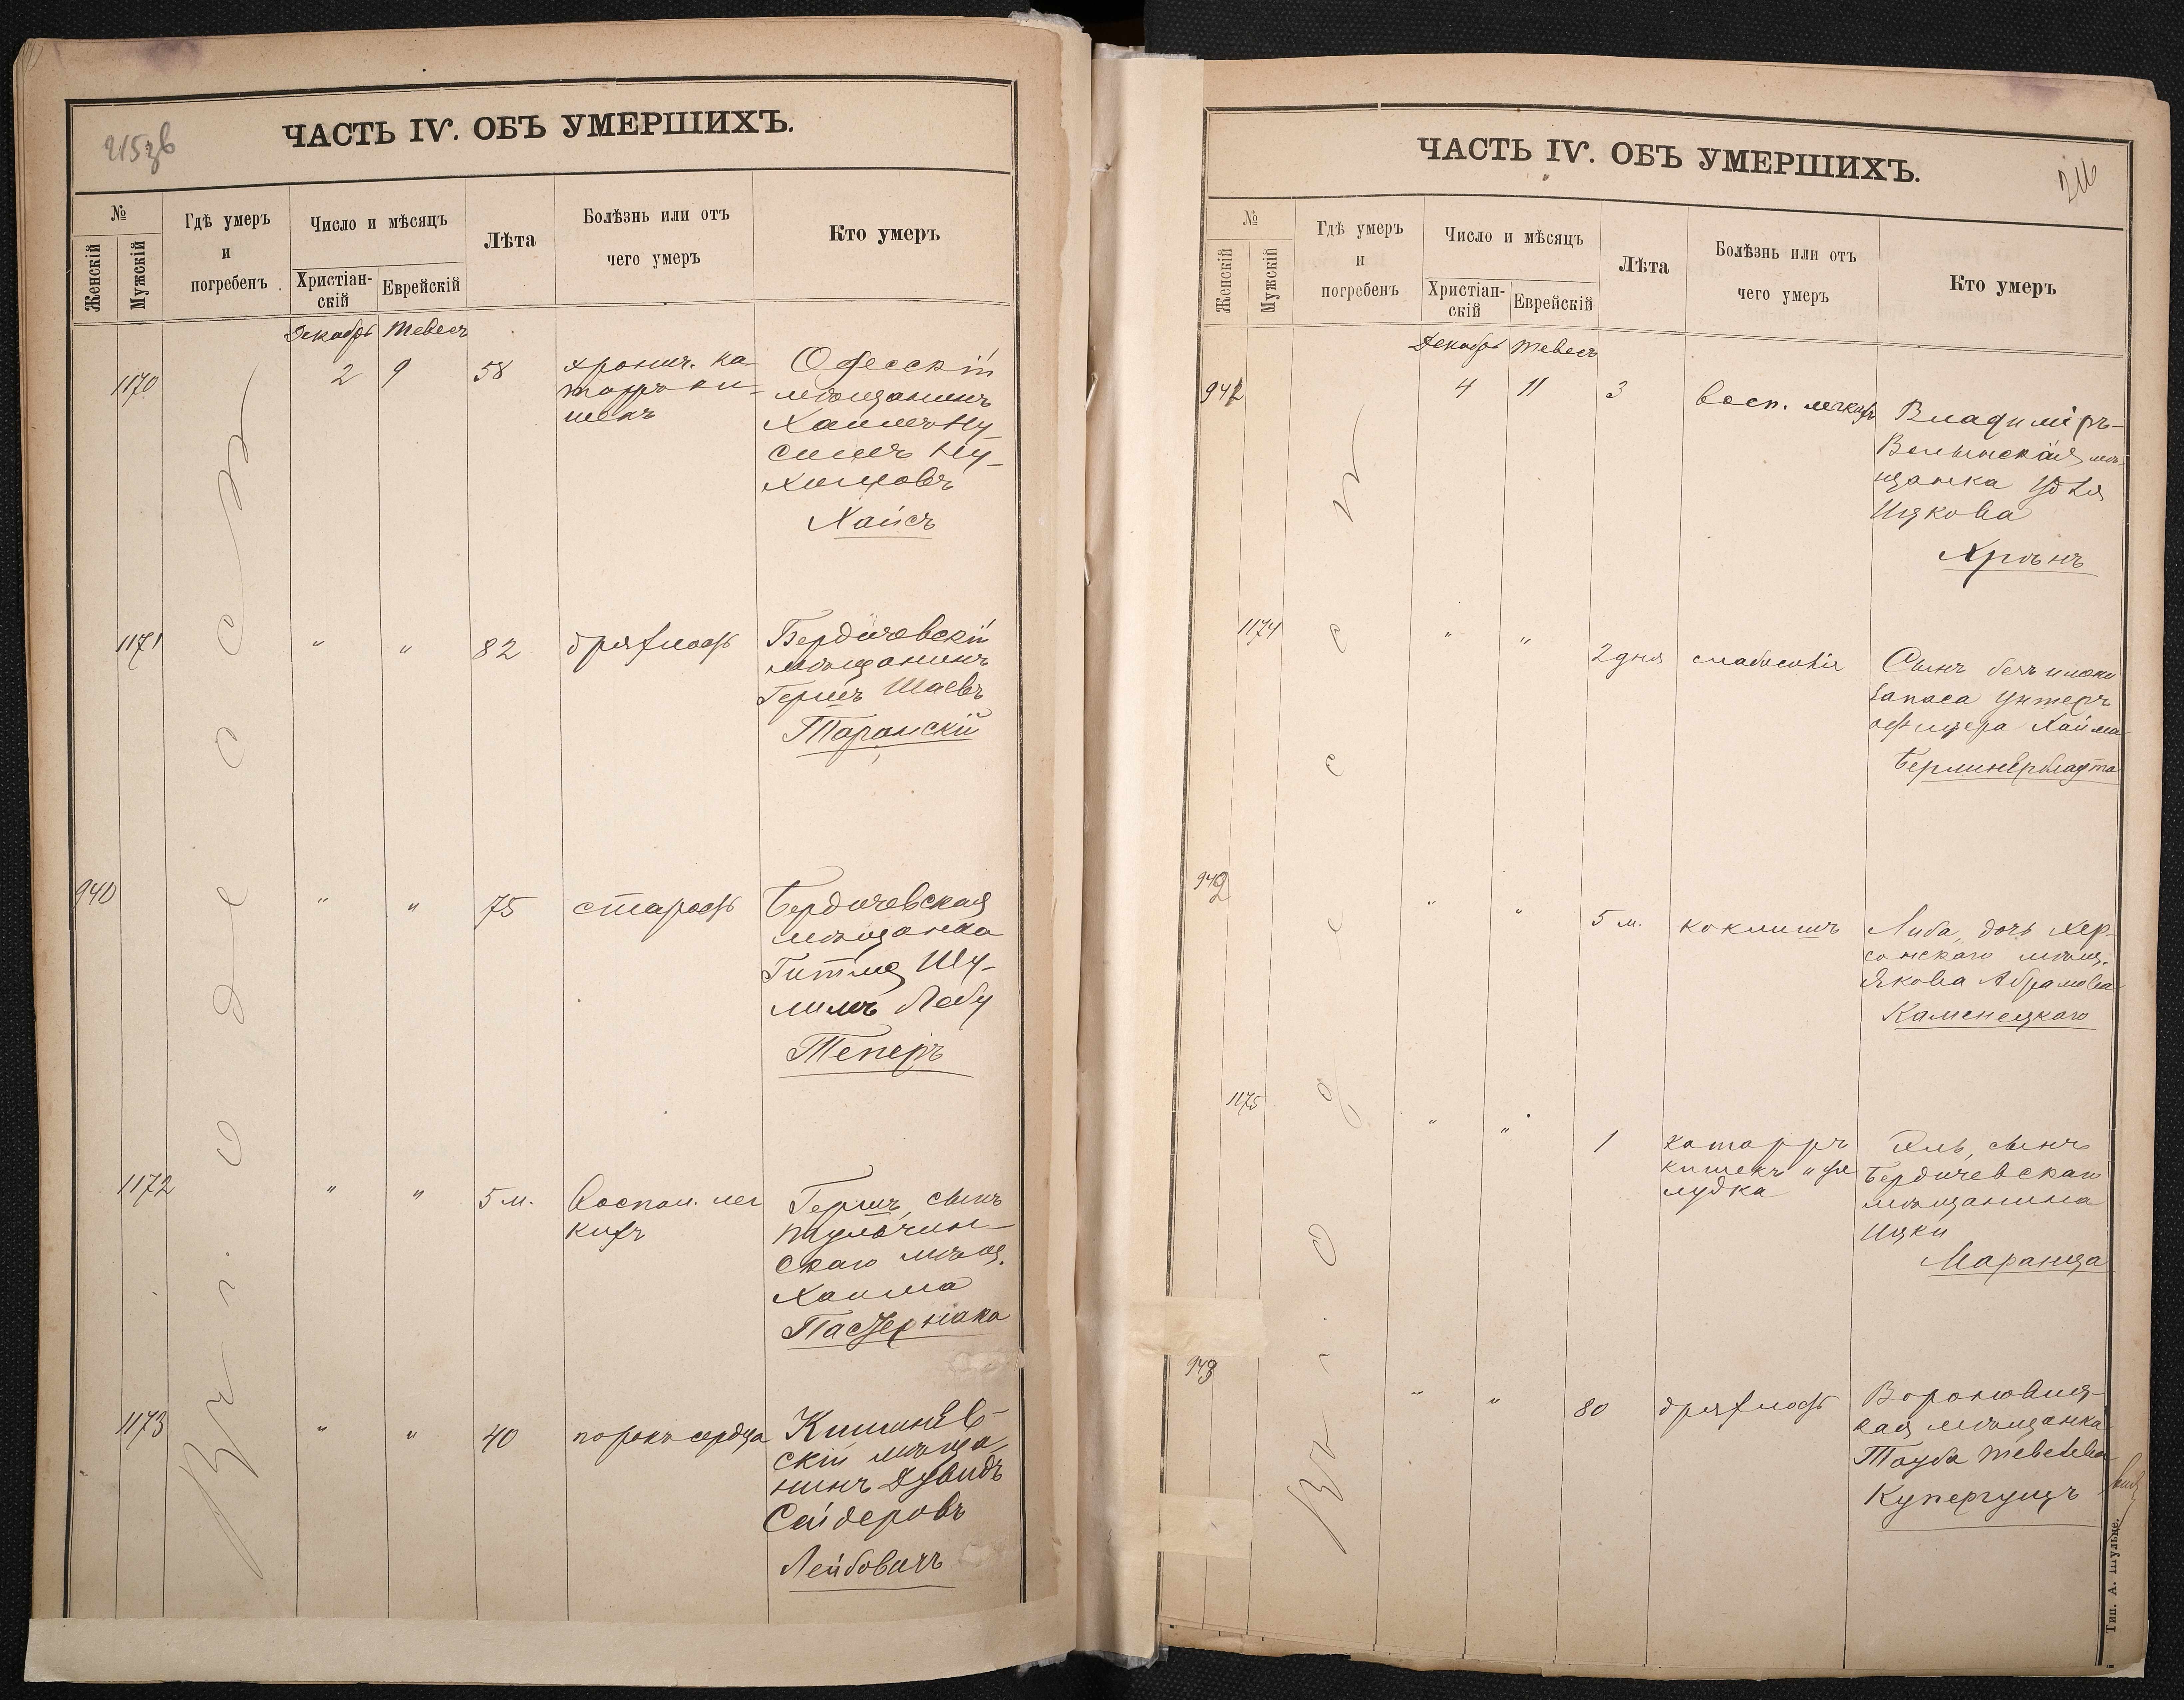 215зв
ЧАСТЬ IV. ОБЪ УМЕРШИХЪ.
№
Женскій
Мужскій
Гдѣ умеръ
и
погребенъ
Число и мѣсяцъ
Христіан-
скій
Еврейскій
Лѣта
Болѣзнь или отъ
чего умеръ
Кто умеръ
Декабрь Тевесъ
Въ г. Одессѣ
1170 2 9 58
хронич. ка-
тарръ ки-
шекъ
Одесскій
мѣщанинъ
Хаимъ Ну-
симъ Ну-
химовъ
Хаисъ
1171 " " 82 дряхлость
Бердичевскій
мѣщанинъ
Гершъ Шаевъ
Таранскій
940 " " 75 старость
Бердичевская
мѣщанка
Гитля Шу-
лимъ Лебу
Теперъ
1172 " " 5 м. Воспал. лег
кихъ
Гершъ, сынъ
тульчин-
скаго мѣщ.
Хаима
Пастернака
1173 " " 40 порокъ сердца
Кишинёв-
скій мѣща-
нинъ Дувидъ
Сейдеровъ
Лейбовичъ
ЧАСТЬ IV. ОБЪ УМЕРШИХЪ.
216
№
Женскій
Мужскій
Гдѣ умеръ
и
погребенъ
Число и мѣсяцъ
Христіан-
скій
Еврейскій
Лѣта
Болѣзнь или отъ
чего умеръ
Кто умеръ
Декабрь Тевесъ
Въ г. Одессѣ
941 4 11 3 восп. легкихъ
Владиміръ-
Волынская мѣ-
щанка Удля
Ицкова
Хрѣнъ
1174 " " 2 дня слабосилія
Сынъ безъ имени
запаса унтеръ
офицера Хайма
Берлинерблаута
942 " " 5 м. коклюшъ
Либа, дочь Хер-
сонскаго мѣщ.
Якова Абрамова
Каменецкаго
1175 " " 1
катарръ
кишекъ и же
лудка
Янь, сынъ
Бердичевскаго
мѣщанина
Ицки
Маранца
943 " " 80 дряхлость
Вороновиц-
кая мѣщанка
Тауба Тевелева
Купергущъ
Тип. А. Шульце.